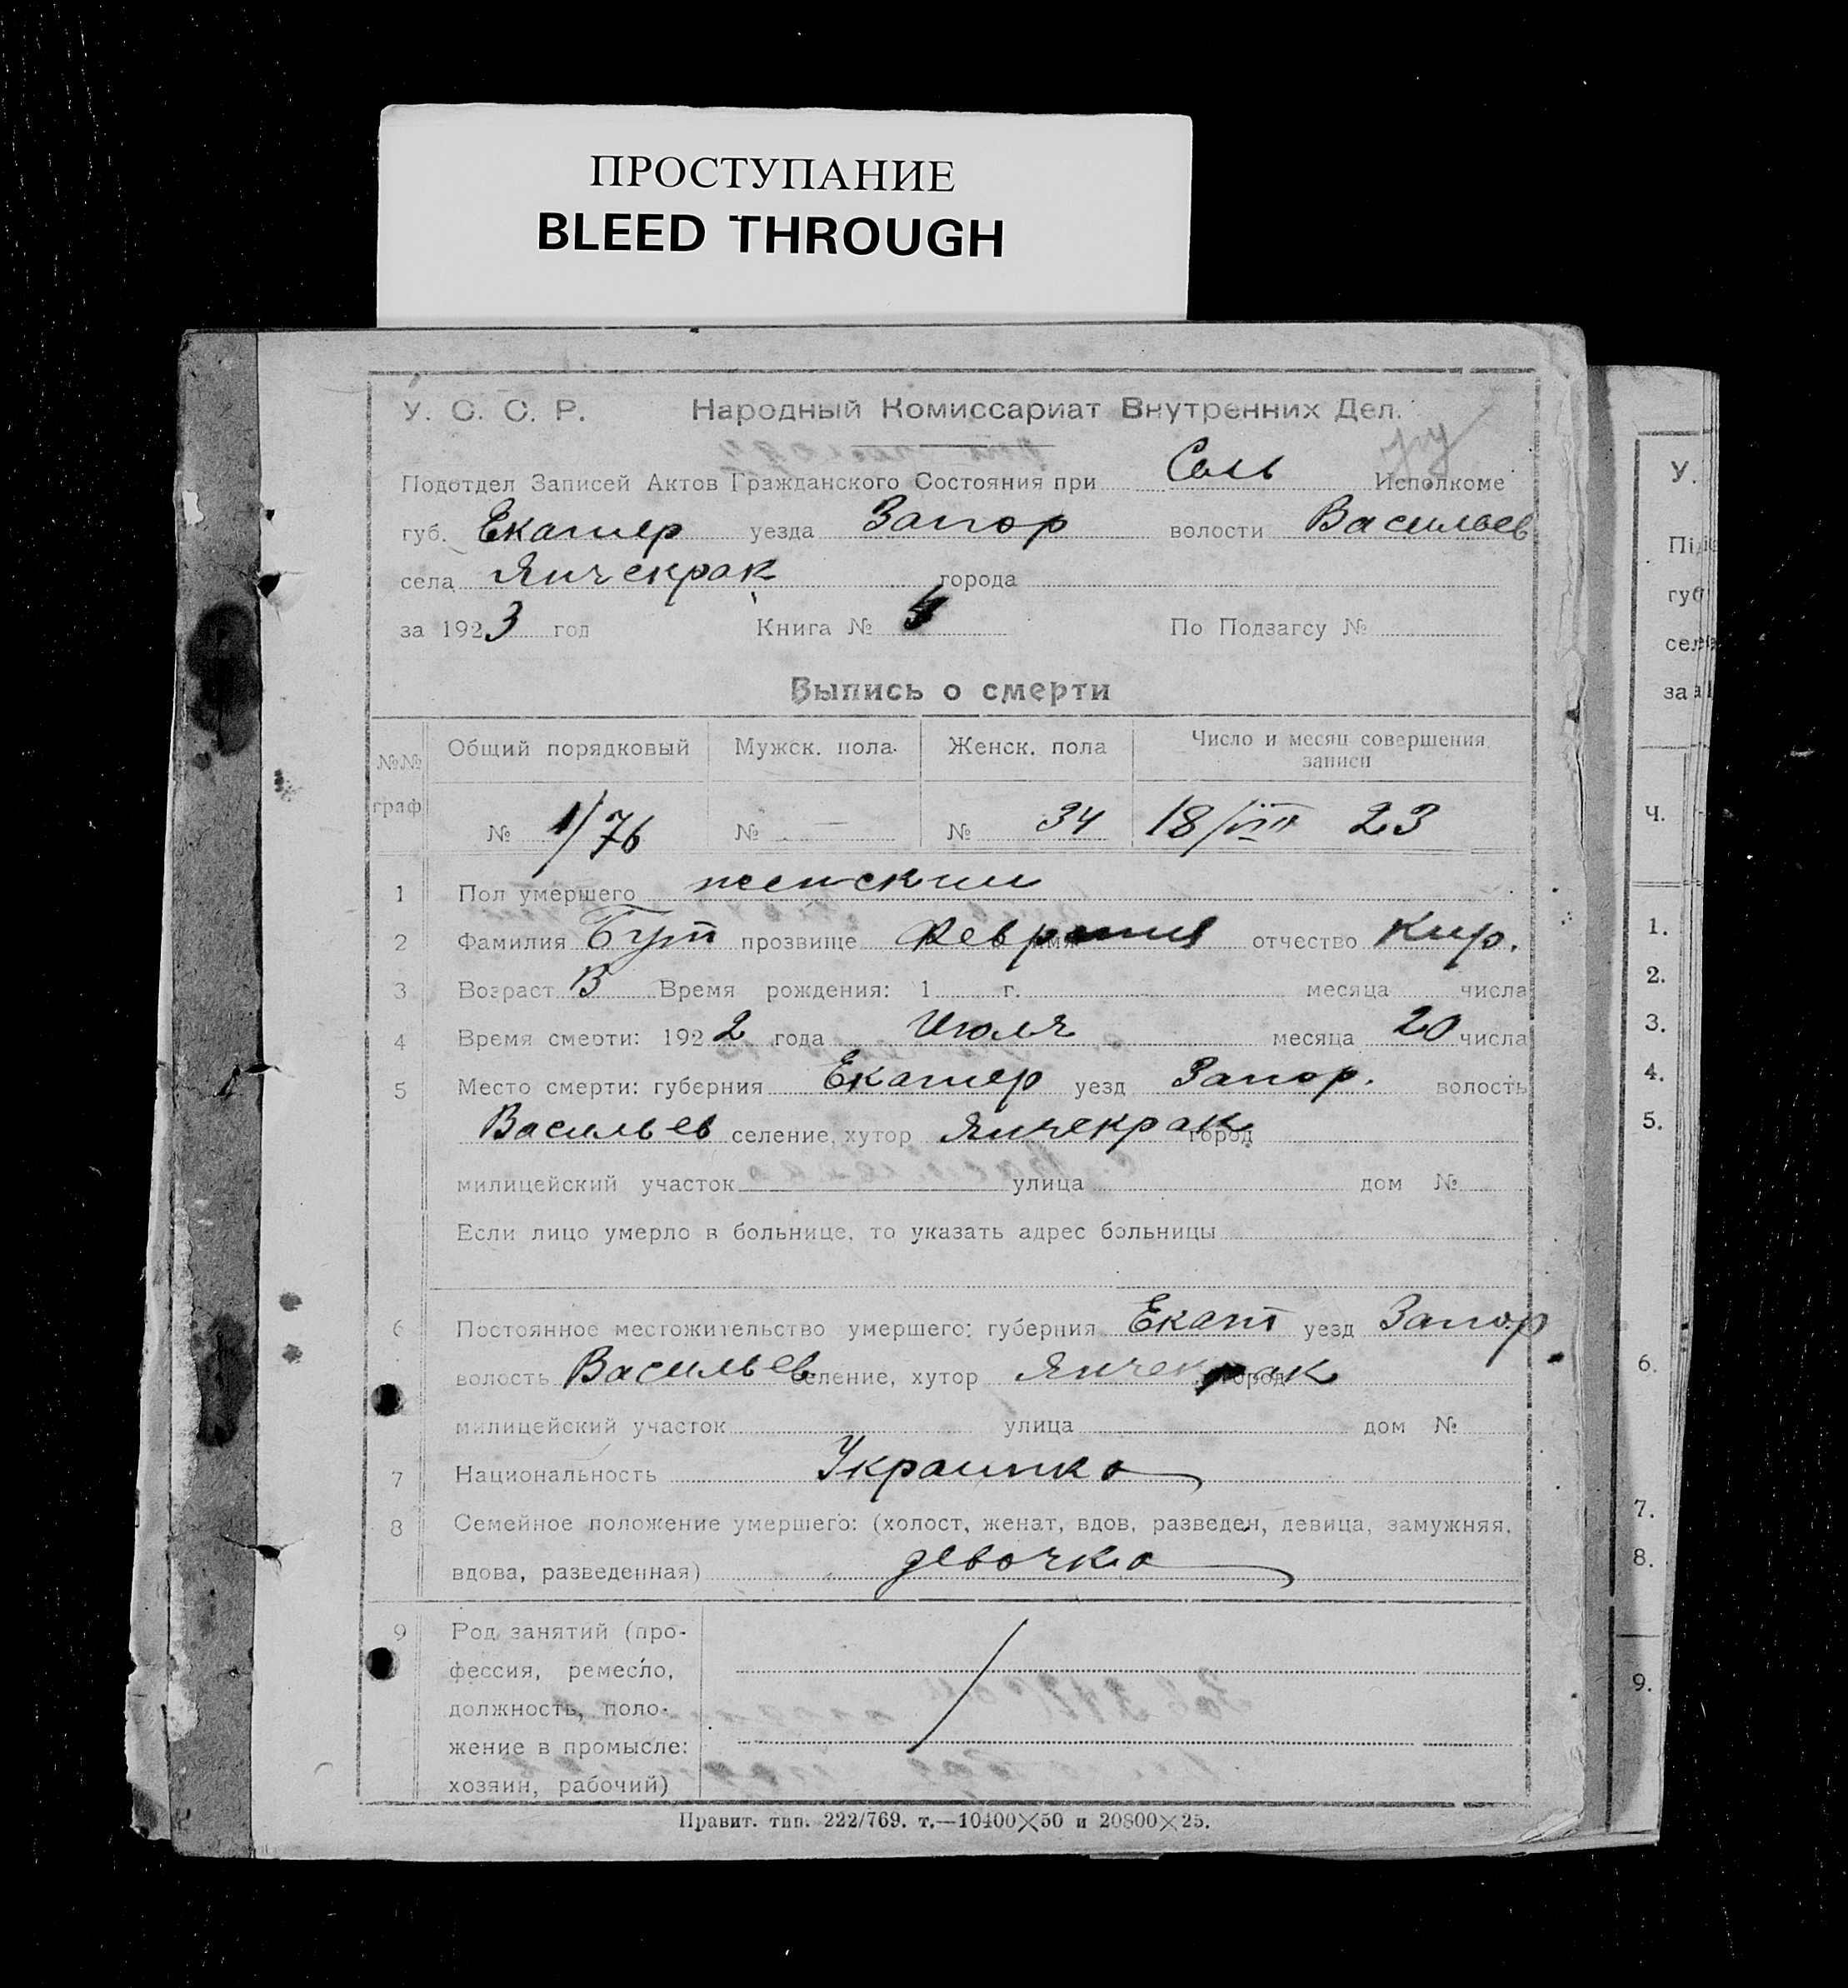 ПРОСТУПАНИЕ
BLEED THROUGH
У. С. С. Р. Народный Комиссариат Внутренних Дел.
Подотдел Записей Актов Гражданского Состояния при Сель Исполкоме
губ. Екатер уезда Запор волости Васильев
села Янчекрак города
за 1923 год Книга № По Подзагсу №
Выпись о смерти
№№ граф Общий порядковый Мужск. пола Женск. пола Число и месяц совершения записи
№ 1/76 № — № 34 18/VIII 23
1 Пол умершего женский
2 Фамилия Бут прозвище имя Феврония отчество Кир.
3 Возраст В Время рождения: 1 г. месяца числа
4 Время смерти: 1922 года Июля месяца 20 числа
5 Место смерти: губерния Екатер уезд Запор. волость
Васильев селение, хутор Янчекрак город
милицейский участок улица дом №
Если лицо умерло в больнице, то указать адрес больницы
6 Постоянное местожительство умершего: губерния Екат уезд Запор
волость Васильев селение, хутор Янчекрак город
милицейский участок улица дом №
7 Национальность Украинка
8 Семейное положение умершего: (холост, женат, вдов, разведен, девица, замужняя,
вдова, разведенная) девочка
9 Род занятий (про-
фессия, ремесло,
должность, поло-
жение в промысле:
хозяин, рабочий)
Правит. тип. 222/769. т.—10400×50 и 20800×25.
У.
Пі
губ
сел
за
Ч.
1.
2.
3.
4.
5.
6.
7.
8.
9.